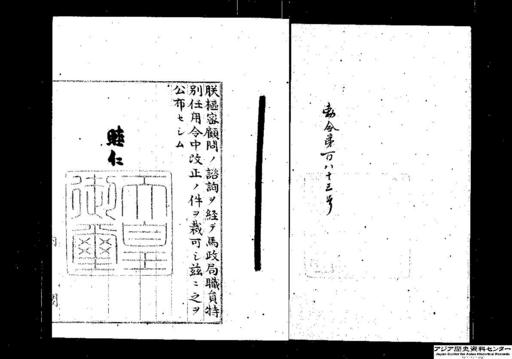 勅令第百八十三号
朕樞密顧問ノ諮詢ヲ経テ馬政局職員特
別任用令中改正ノ件ヲ裁可シ茲ニ之ヲ
公布セシム
睦仁
天皇御璽
アジア歴史資料センター
Japan Center for Asian Historical Records